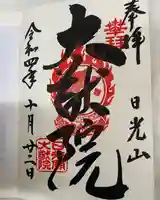 奉拝
日光山
大猷院
令和四年十月廿二日
日光山
大猷院